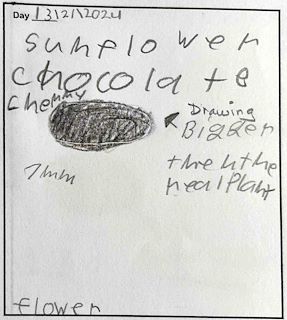 Day 13\2\2024
sunflower
chocolate
cherry
Drawing
Bigger
then the
real plant
7mm
flower